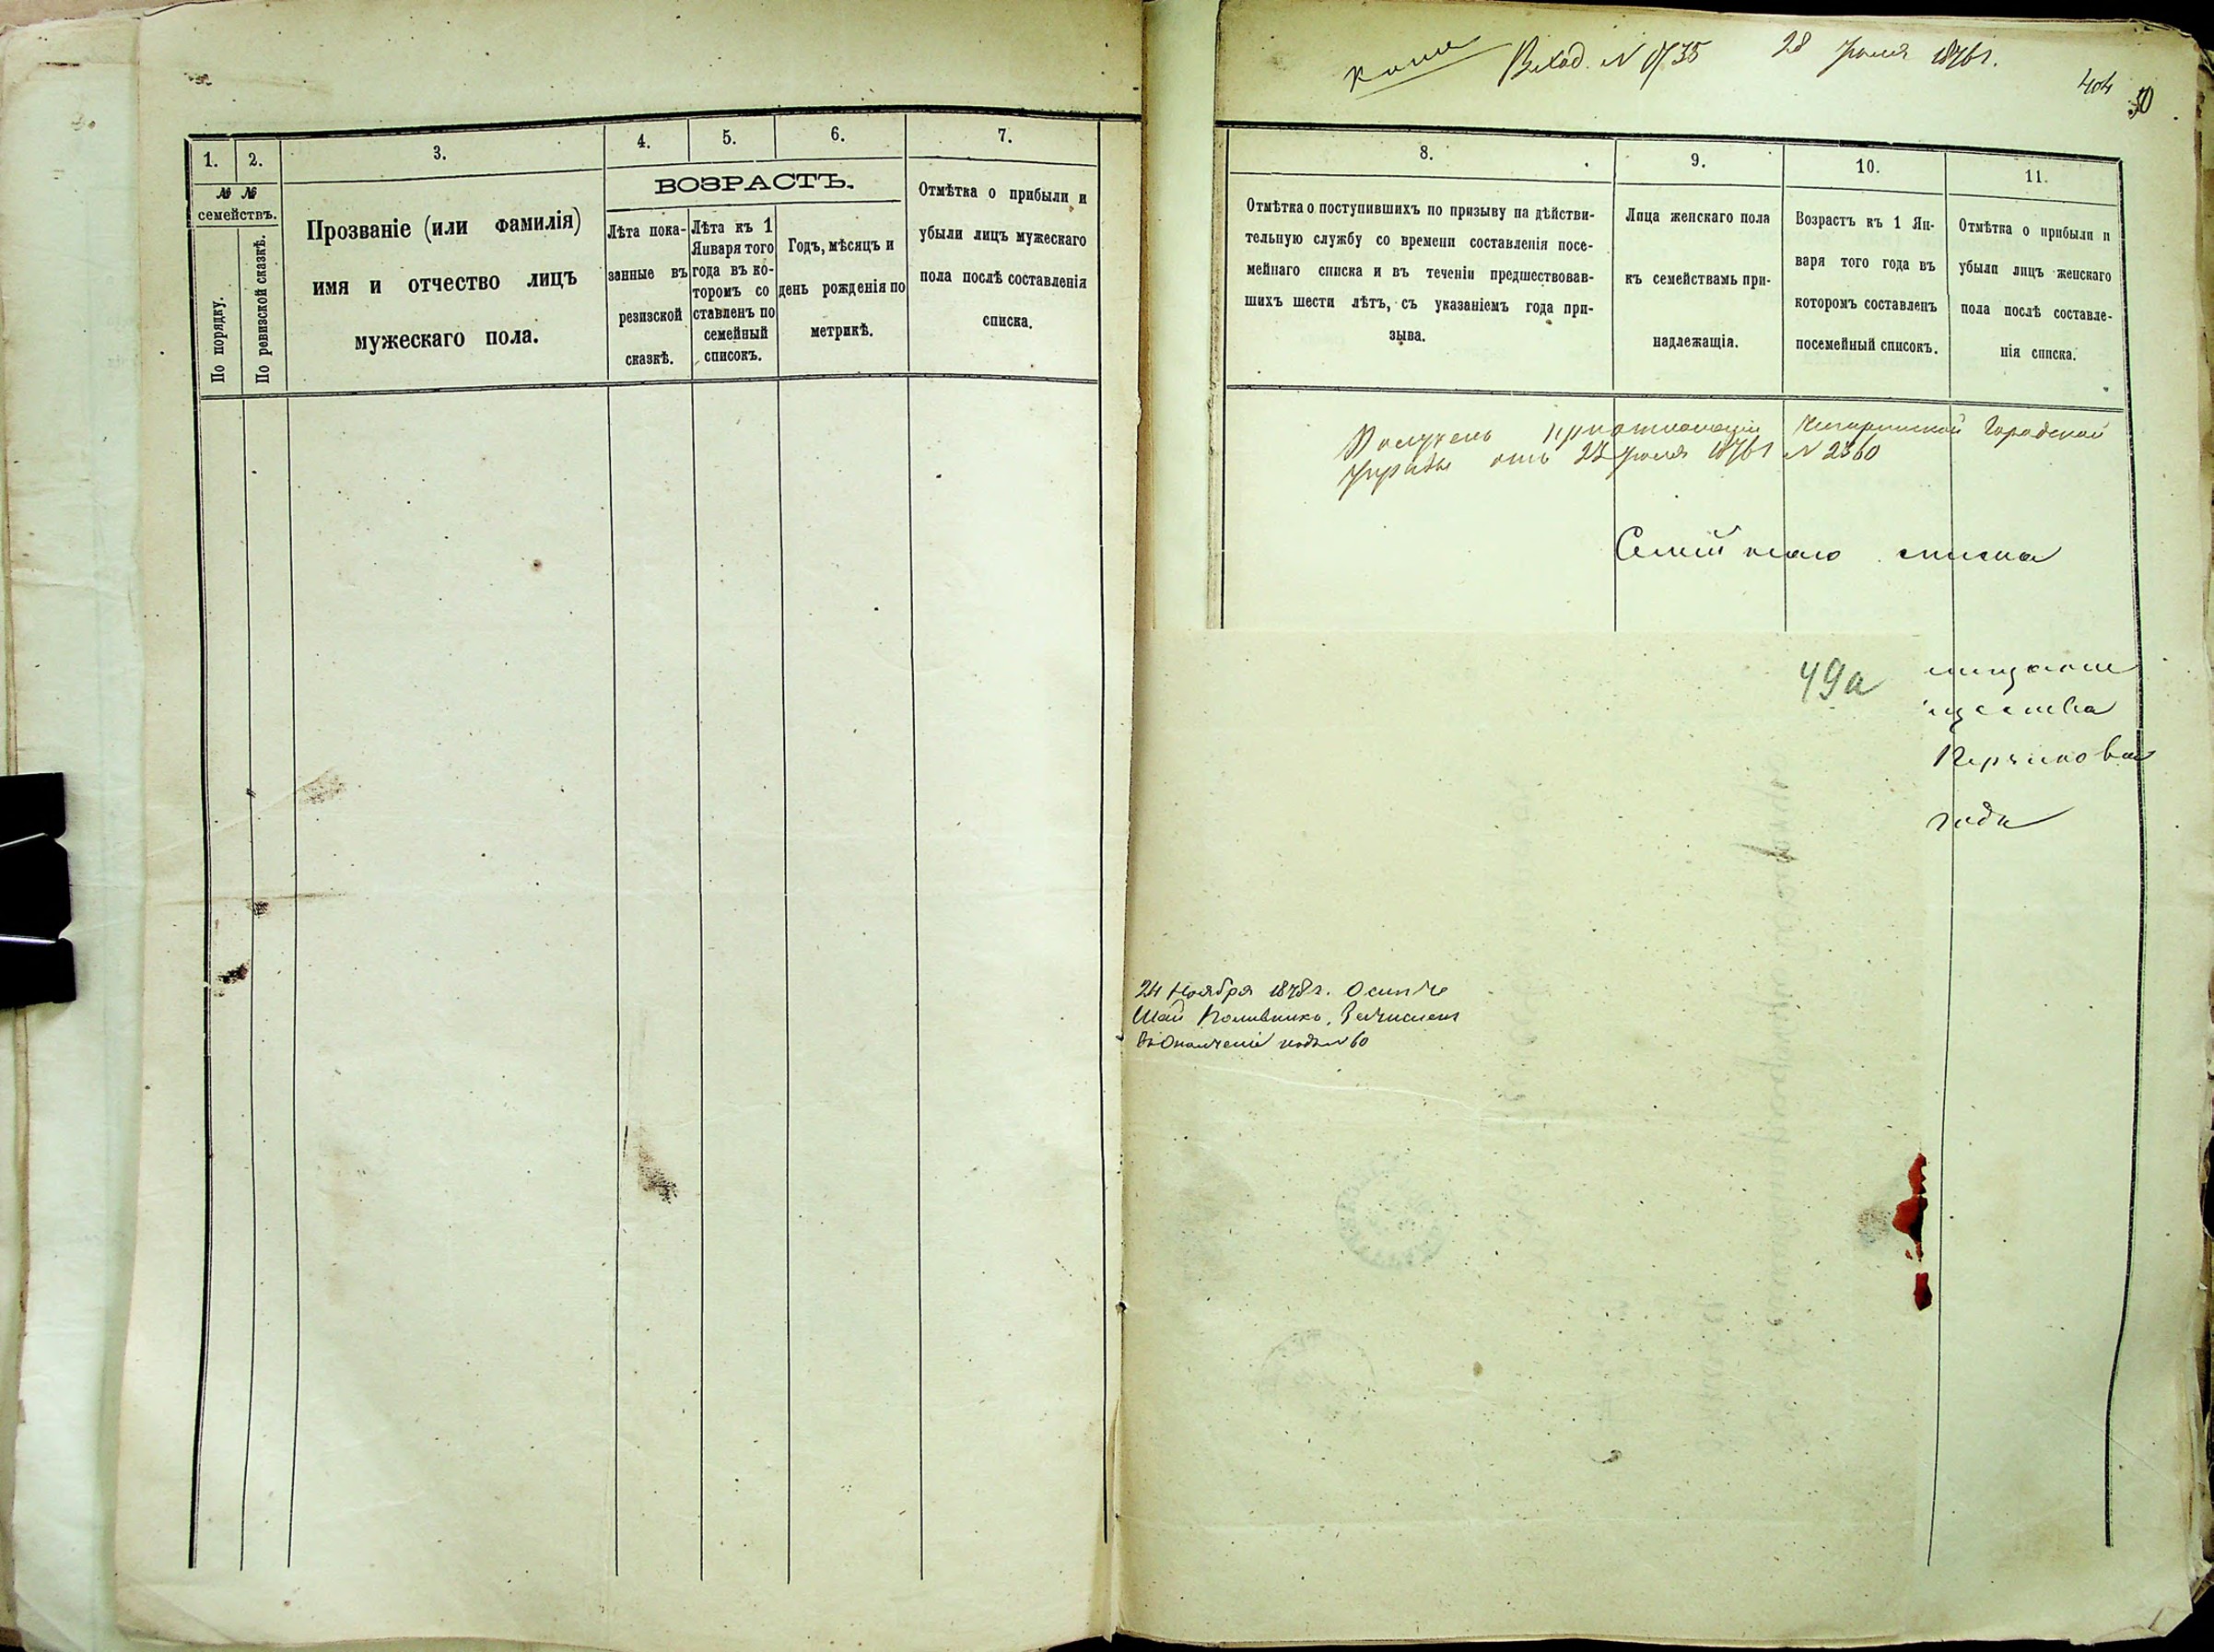 1.
2.
3.
4.
5.
6.
7.
№ №
семействъ.
По порядку.
По ревизской сказкѣ.
Прозваніе (или фамилія)
имя и отчество лицъ
мужескаго пола.
ВОЗРАСТЪ.
Лѣта пока-
занные въ
резизской
сказкѣ.
Лѣта къ 1
Января того
года въ ко-
торомъ со
ставленъ по
семейный
списокъ.
Годъ, мѣсяцъ и
день рожденія по
метрикѣ.
Отмѣтка о прибыли и
убыли лицъ мужескаго
пола послѣ составленія
списка.
Вход. N 28 Іюля 1876 г.
404
50
8.
9.
10.
11.
Отмѣтка о поступившихъ по призыву на дѣйстви-
тельную службу со времени составленія посе-
мейнаго списка и въ теченіи предшествовав-
шихъ шести лѣтъ, съ указаніемъ года при-
зыва.
Лица женскаго пола
къ семействамъ при-
надлежащія.
Возрастъ къ 1 Ян-
варя того года въ
которомъ составленъ
посемейный списокъ.
Отмѣтка о прибыли и
убыли лицъ женскаго
пола послѣ составле-
нія списка.
Полученъ при отношеніи Чигиринской Городской
Управы отъ Іюля 1876 г N 2360
списка
49а
года
24 Ноября 1878 г.
Зачисленъ
въ Ополченіе подъ N 60